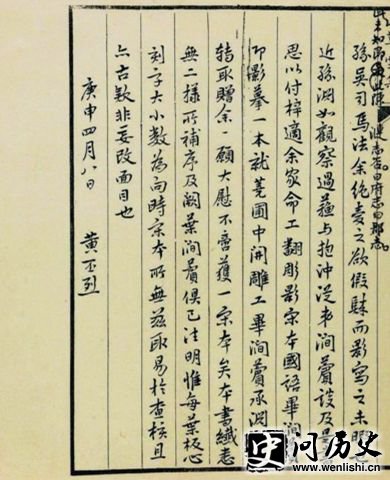 孫吳司馬法余絕愛之欲假歸而影寫之未暇
近孫淵如觀察過蘇与抱沖從弟澗薲談及是
思以付梓適余家命工翻彫影宋本國語畢澗
即影摹一本就蕘圃中開雕工畢澗薲承淵
轉取贈余一願大慰不啻獲一宋本矣本書纖悉
無二樣所補序及闕葉澗薲俱已注明惟每葉板心
刻字大小數為向時宋本所無茲取易於查核且
亦古款非妄改面目也
庚申四月八日 黃丕烈
问历史
www.wenlishi.cn